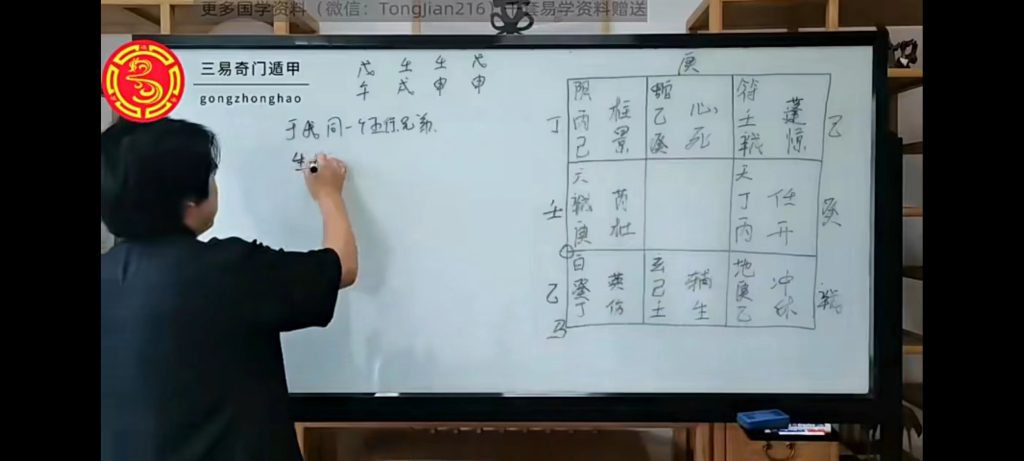 更多国学资料（微信：TongJian216）千套易学资料赠送
三易奇门遁甲
gongzhonghao
戊 壬 壬 戊
午 戌 申 申
于我同一个五行兄弟.
生
庚
阴 柱 乙 心 符 蓬
丁 丙 己 景 癸 死 壬 惊 乙
六 芮 天 任
壬 庚 杜 丁 丙 开 癸
白 英 玄 辅 地 冲
乙 丁 伤 己 壬 生 庚 乙 休
马